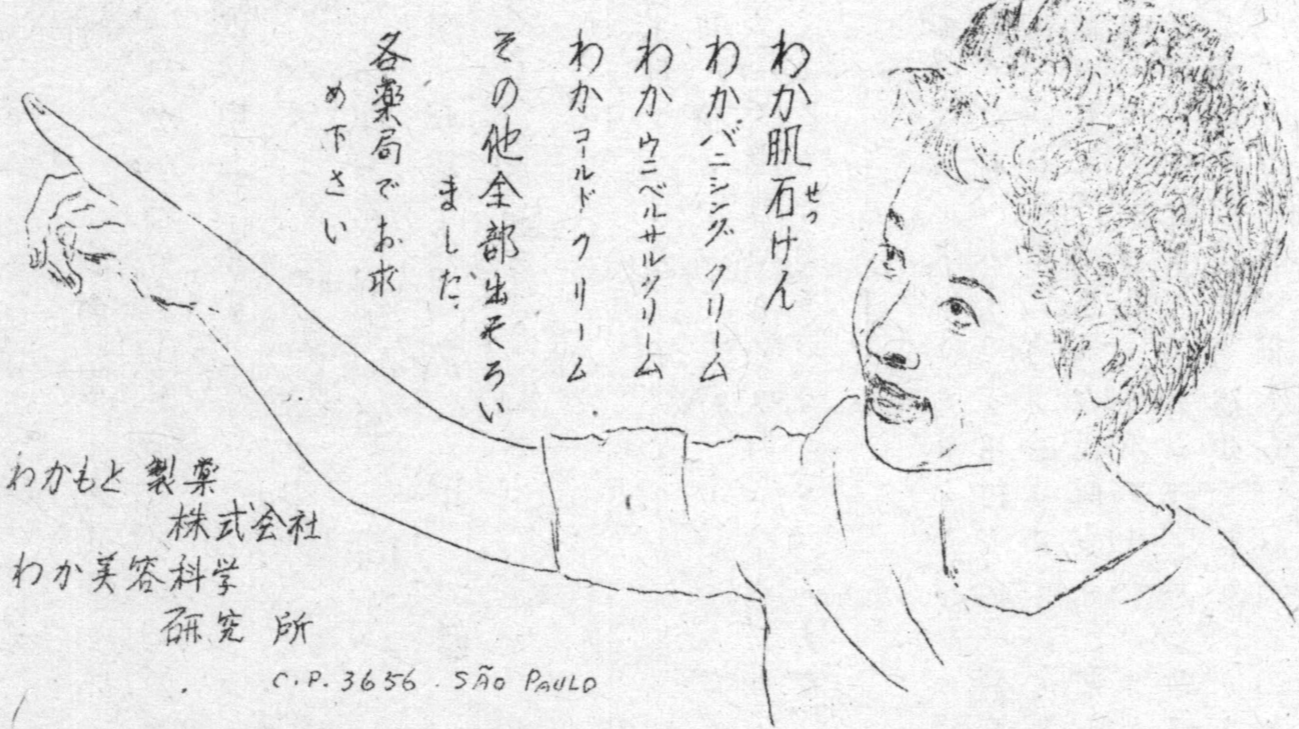 わか肌石けん
せっ
わかバニシングクリーム
わかウニベルサルクリーム
わかコールドクリーム
その他全部出そろい
ました
各薬局でお求
め下さい
わかもと製薬
株式会社
わか美容科学
研究所
C.P. 3656. SÃO PAULO